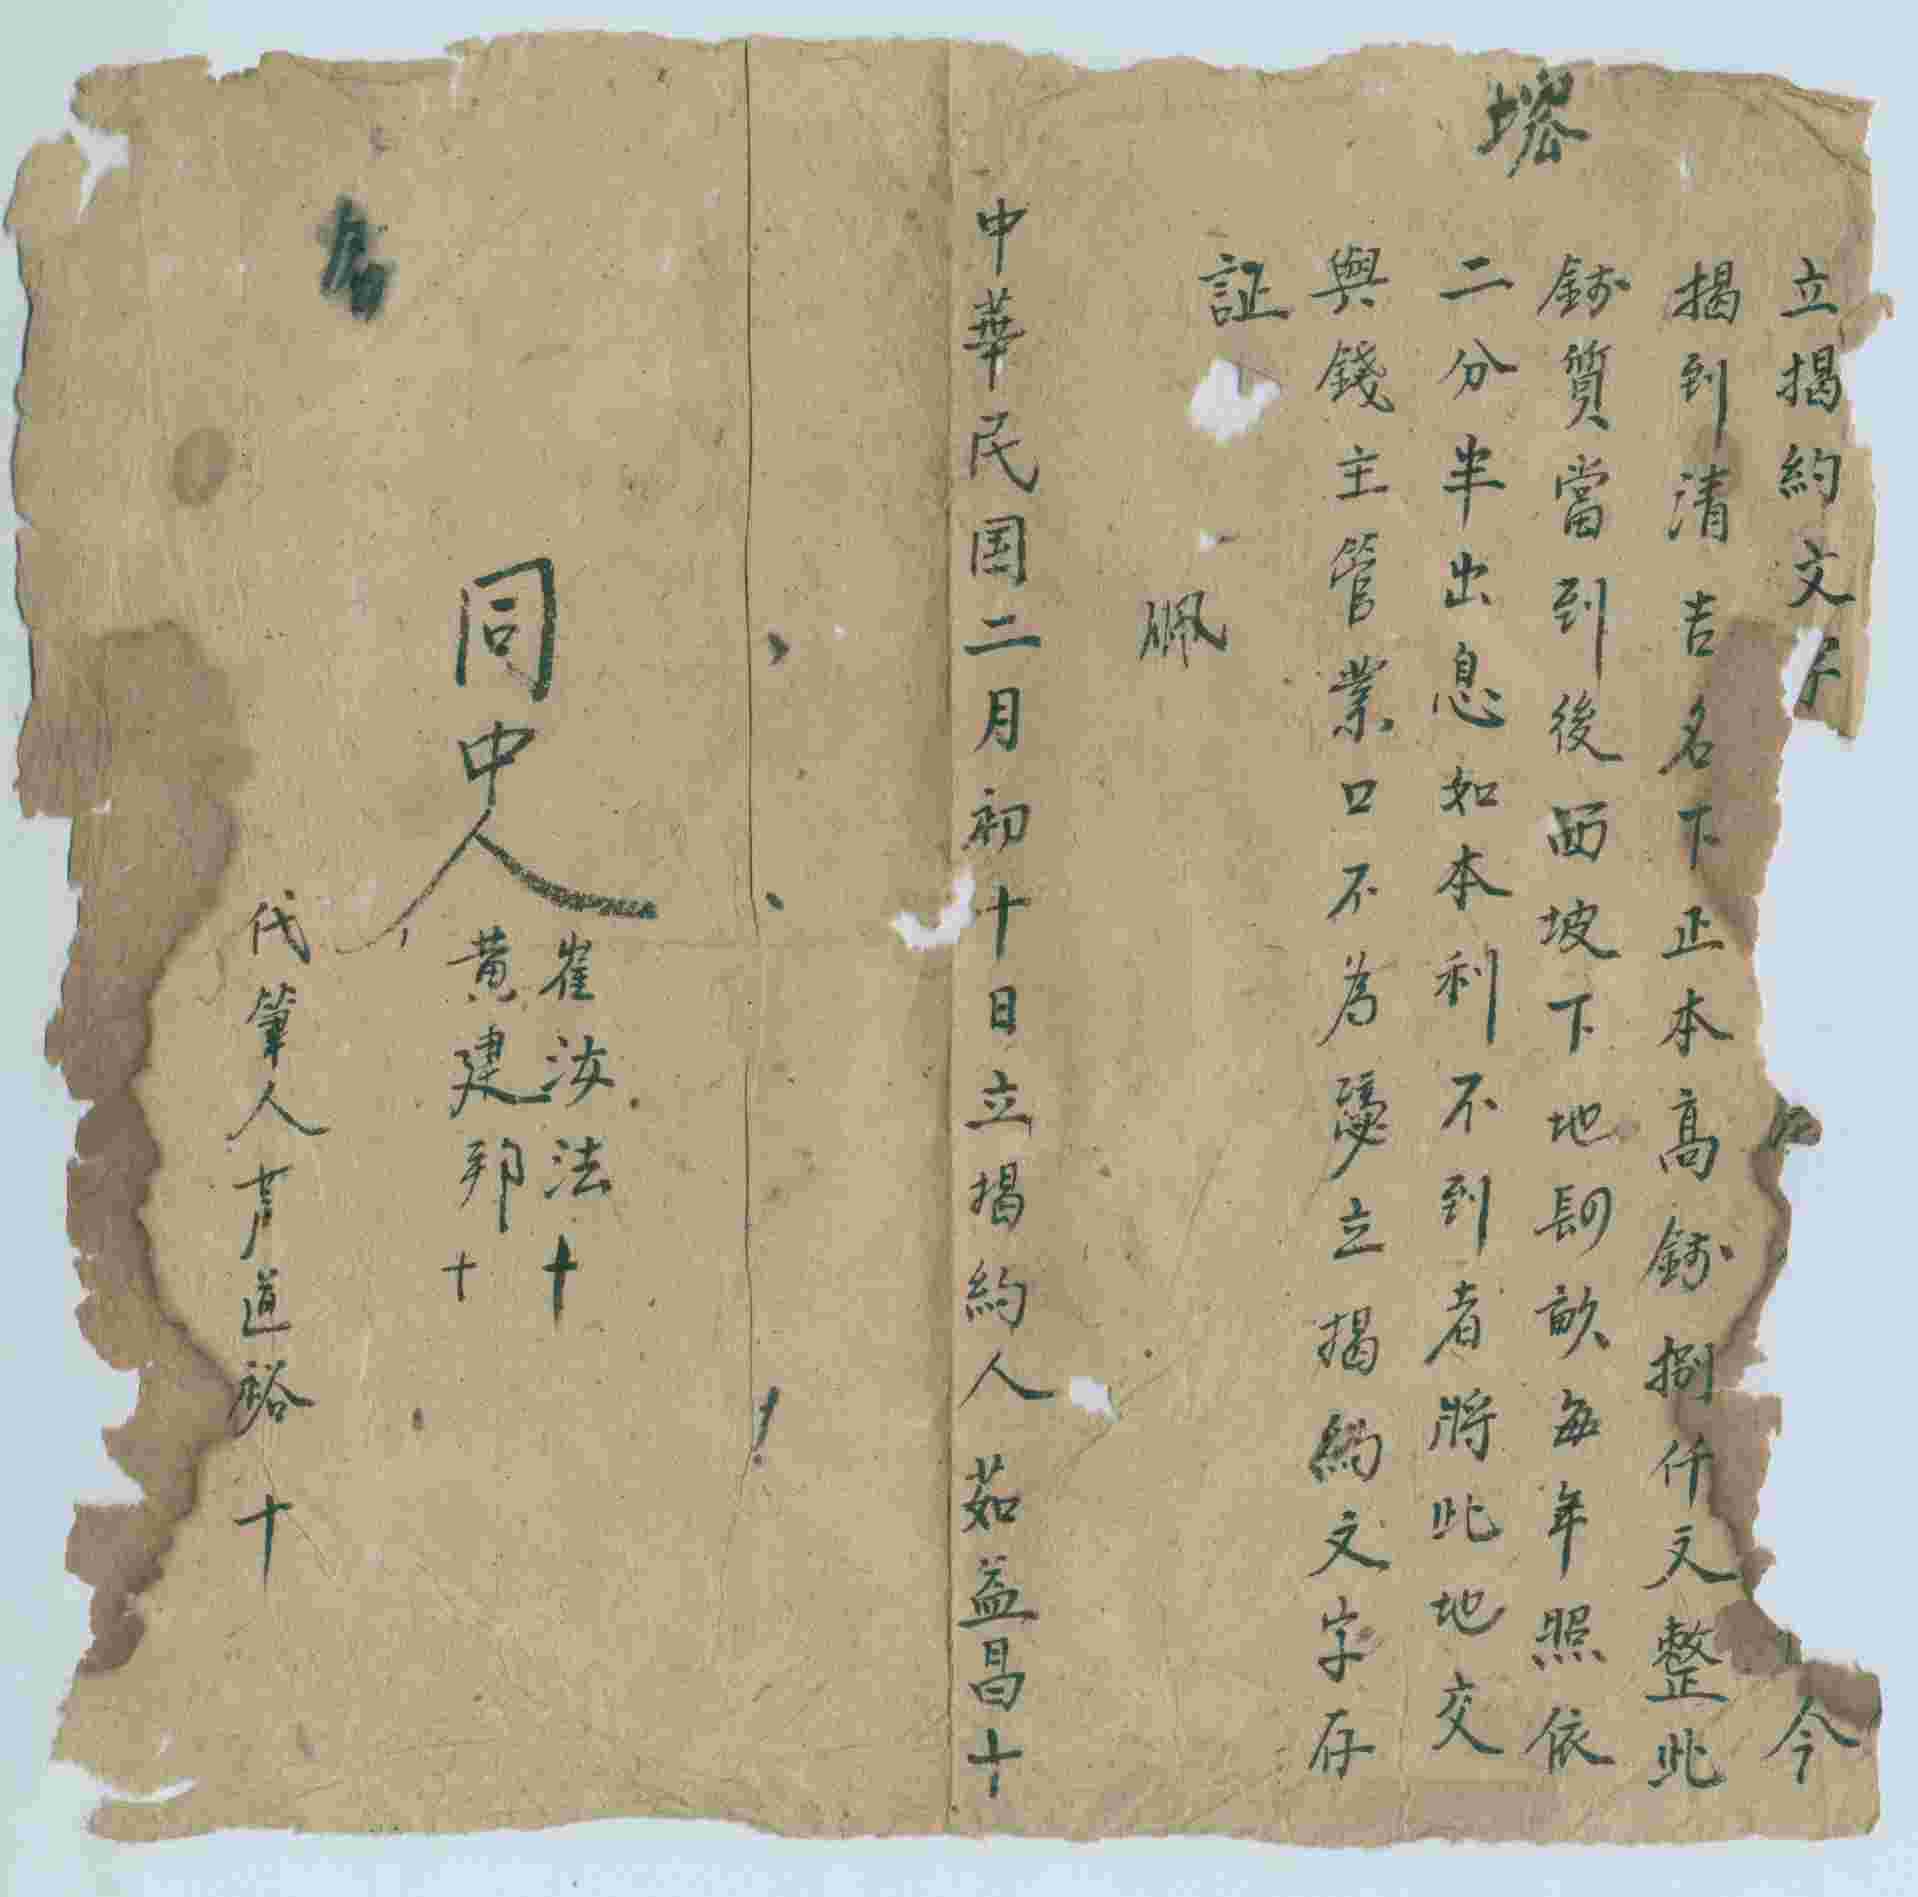 立揭約文字
今
揭到清吉名下正本高錢捌仟文整此
錢質當到後西坡下地 畝每年照依
二分半出息如本利不到者將此地交
與錢主管業口不為憑立揭約文字存
証
中華民国二月初十日立揭約人茹益昌十
同中人
崔汝法十
黄建邦十
代筆人芦道裕十